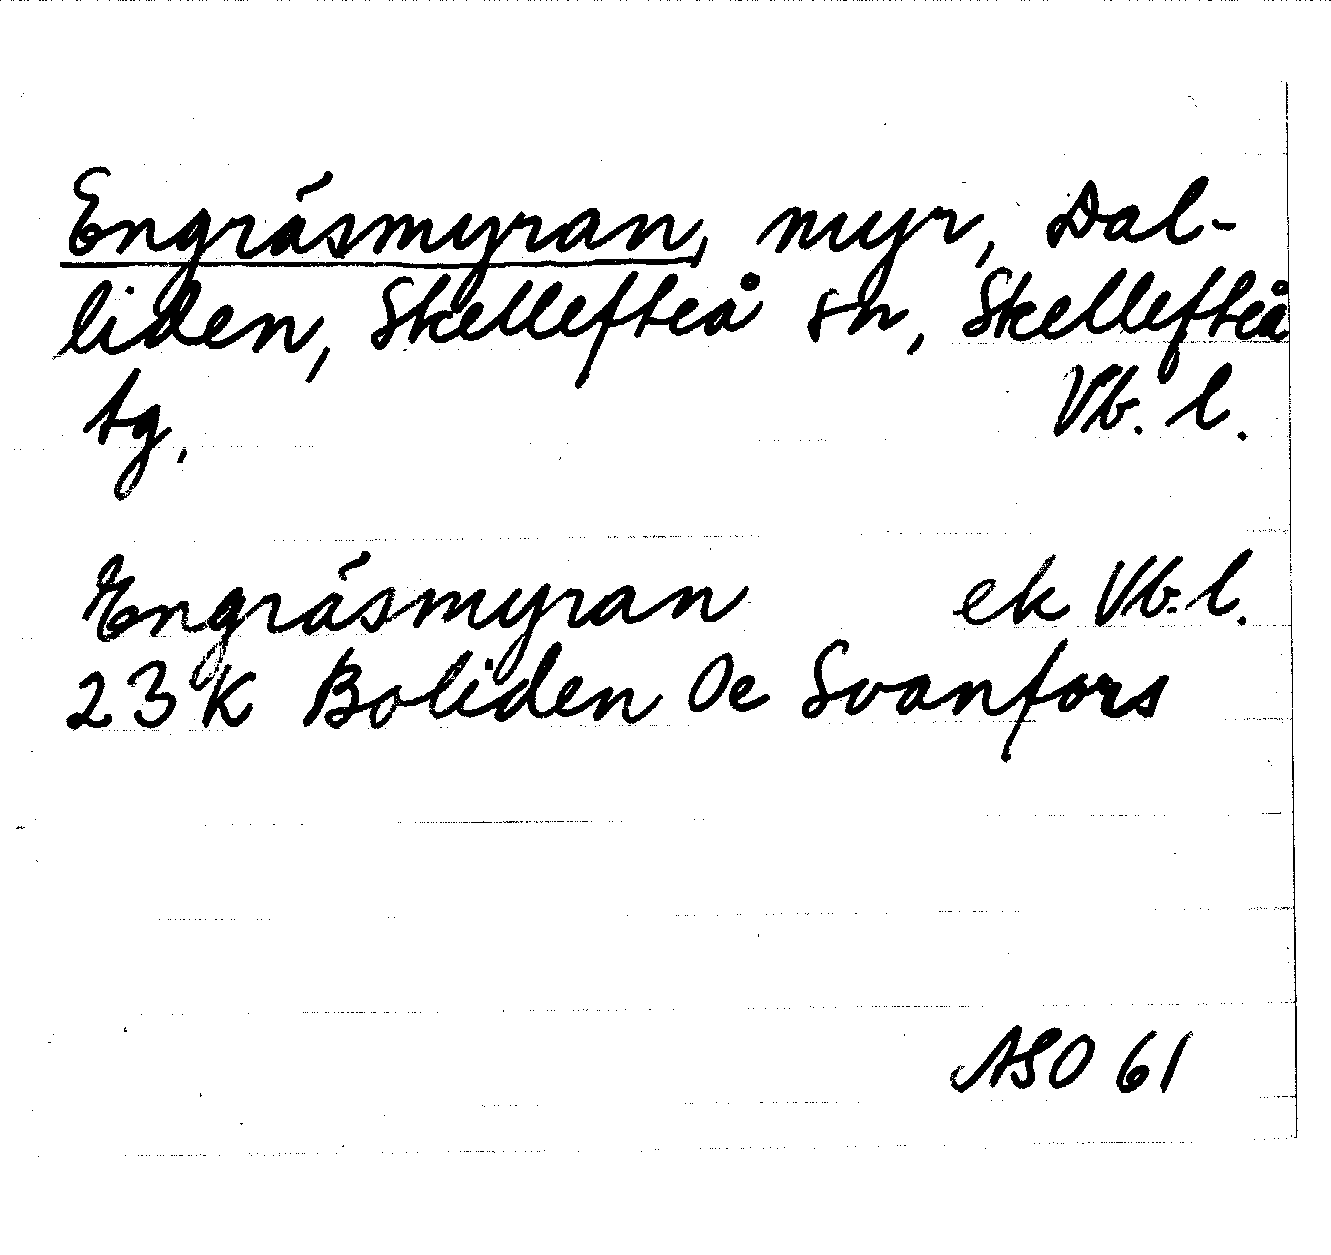 Engräsmyran, myr, Dal-
liden, Skellefteå sn, Skellefteå
tg, Vb. l.
Engräsmyran ek Vb. l.
23 K Boliden 0e Svanfors
ASO 61